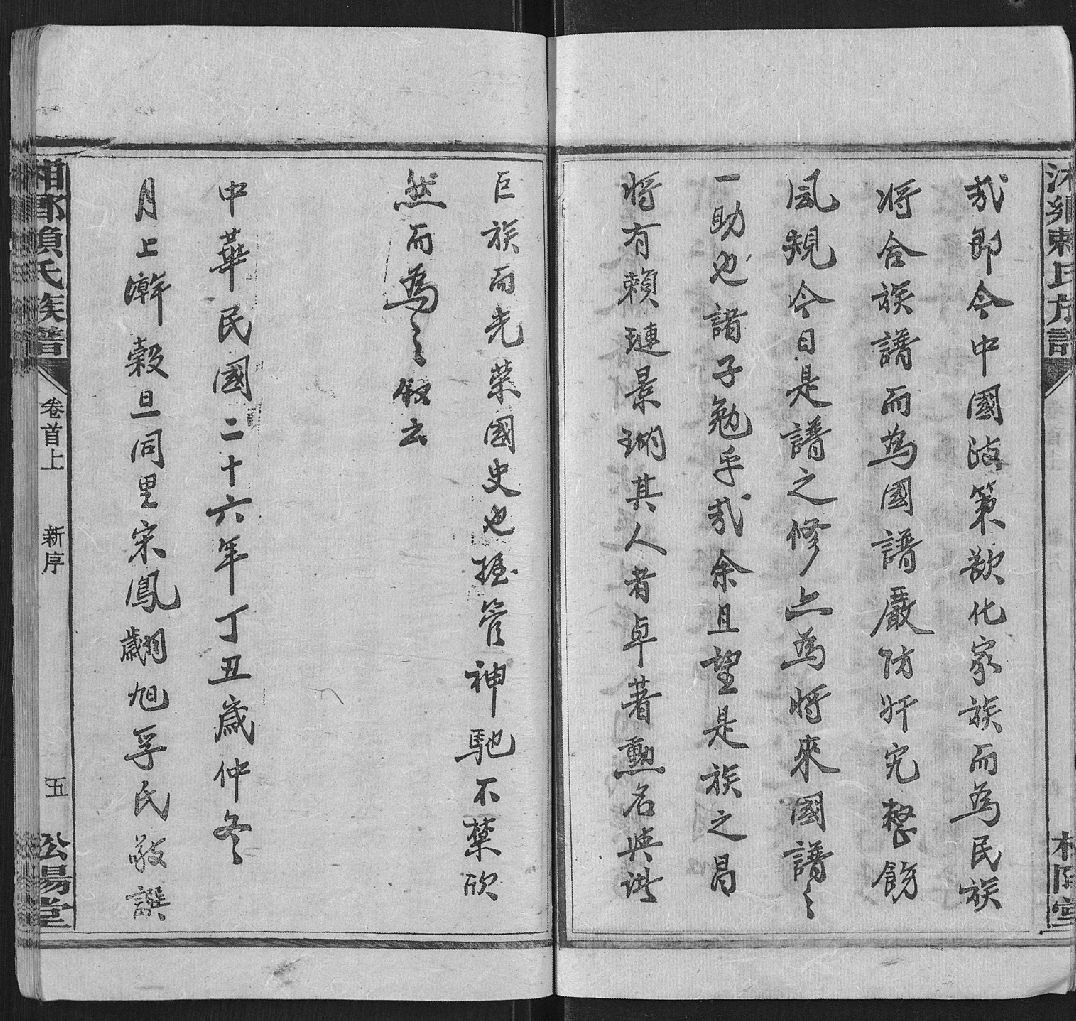 哉即今中國政策欲化家族而為民族
將合族譜而為國譜嚴防奸宄整飭
風規今日是譜之修亦為將來國譜之
一助也諸子勉乎哉余且望是族之昌
將有賴璉景瑚其人者卓著勳名與諸
巨族而光榮國史也握管神馳不禁欣
然而為之叙云
中華民國二十六年丁丑歲仲冬
月上澣穀旦同里宋鳳翽旭孚氏敬譔
湘鄉賴氏族譜 卷首上 新序 五 松陽堂